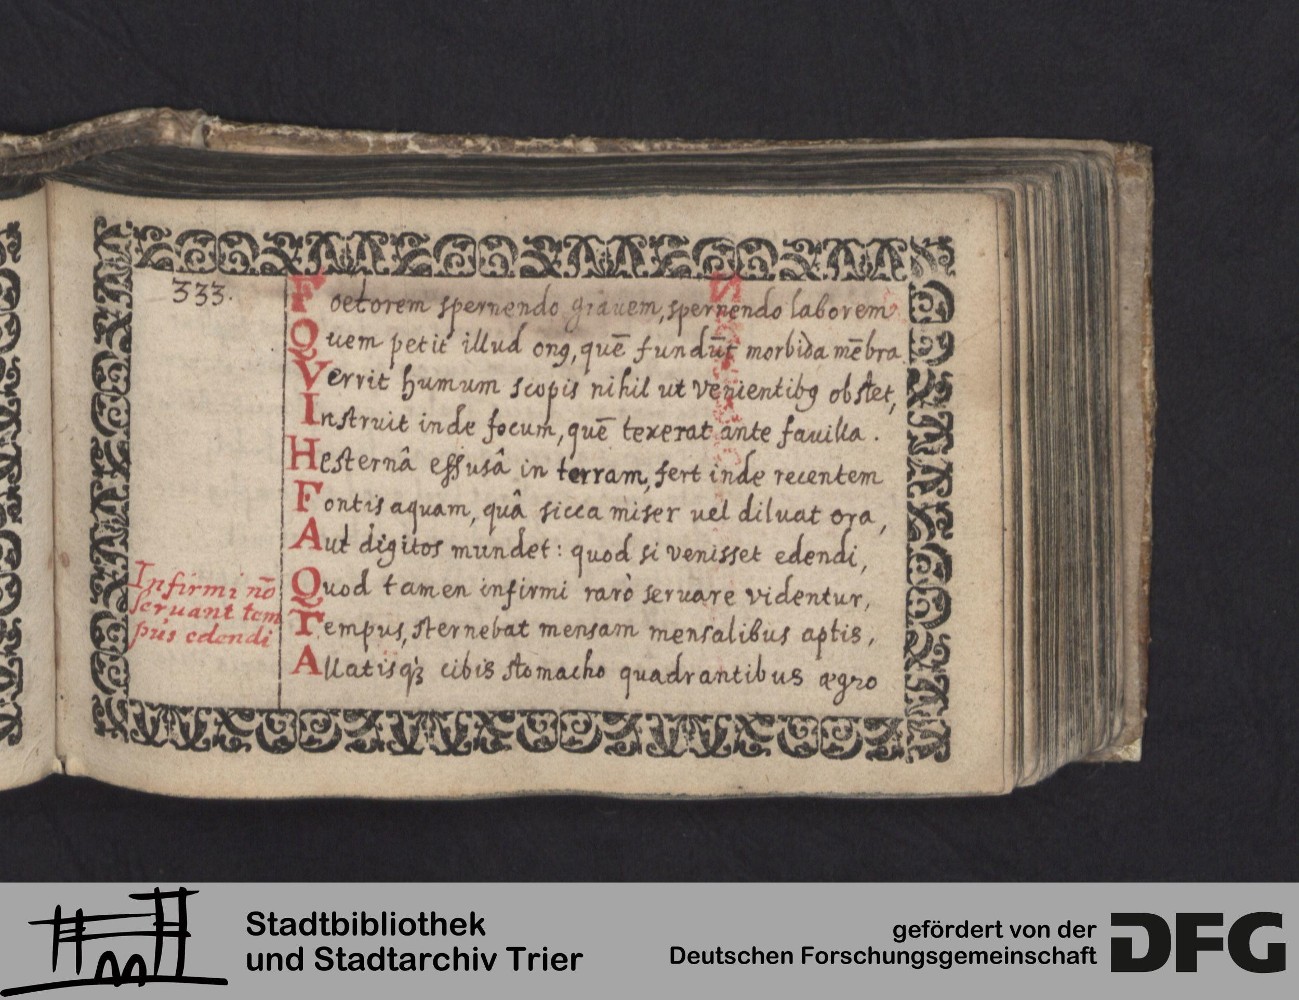 333.
Foetorem spernendo grauem, spernendo laborem
Quem petit illud onꝰ, quē fundūt morbida mēbra
Verrit humum scopis nihil ut venientibꝰ obstet,
Instruit inde focum, quē texerat ante fauilla.
Hesternâ effusâ in terram, fert inde recentem
Fontis aquam, quâ sicca miser uel diluat ora,
Aut digitos mundet: quod si venisset edendi,
Quod tamen infirmi rarò seruare videntur,
Tempus, sternebat mensam mensalibus aptis,
Allatisqꝫ cibis stomacho quadrantibus ægro
Infirmi nō
seruant tem
pus edendi
Stadtbibliothek
und Stadtarchiv Trier
gefördert von der
Deutschen Forschungsgemeinschaft
DFG